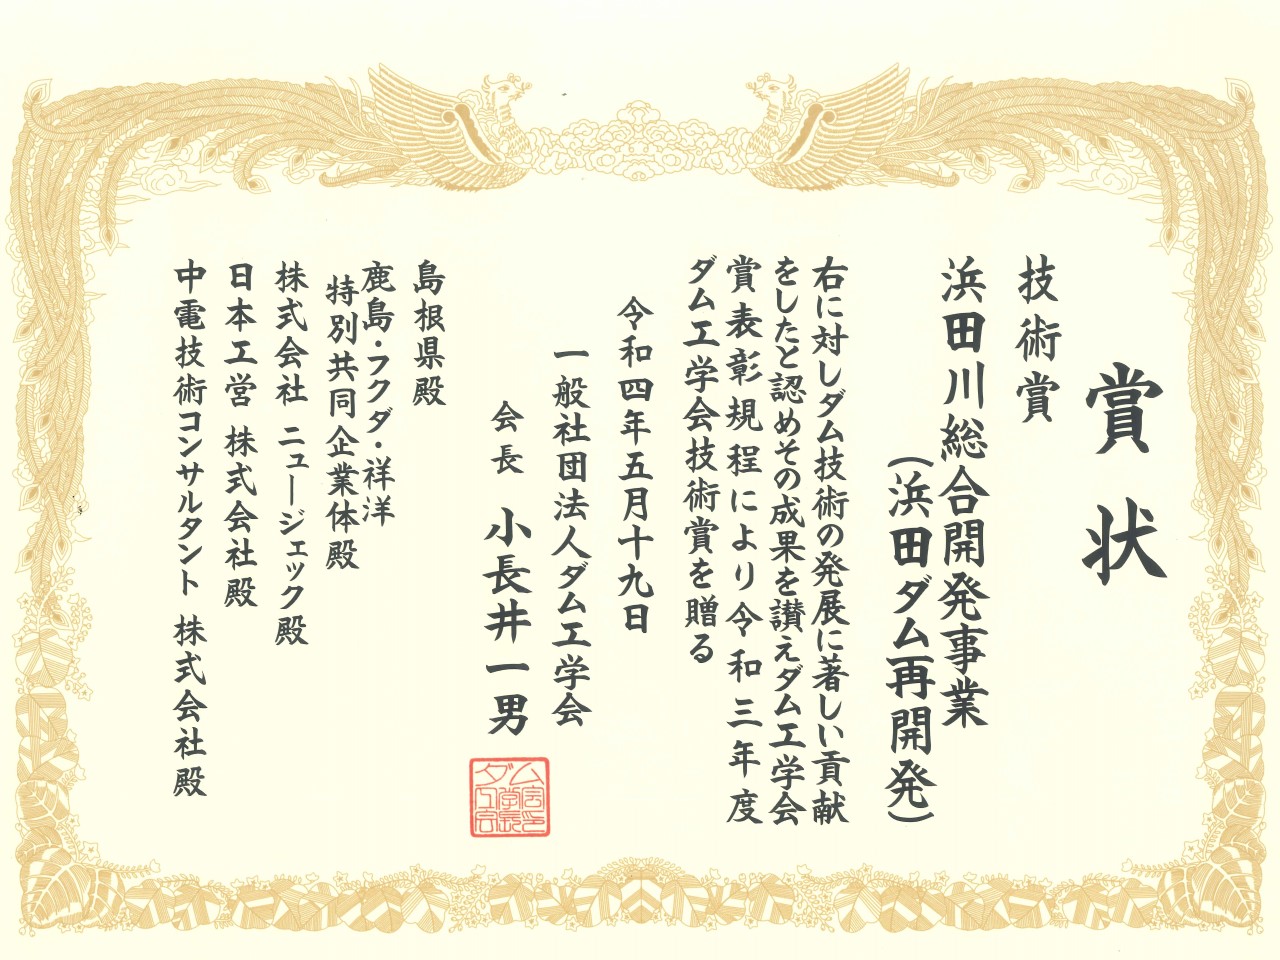 賞状
技術賞
浜田川総合開発事業
(浜田ダム再開発)
右に対しダム技術の発展に著しい貢献
をしたと認めその成果を讃えダム工学会
賞表彰規程により令和三年度
ダム工学会技術賞を贈る
令和四年五月十九日
一般社団法人ダム工学会
会長 小長井一男
島根県殿
鹿島・フクダ・祥洋
特別共同企業体殿
株式会社 ニュージェック殿
日本工営 株式会社殿
中電技術コンサルタント 株式会社殿
ダム
工学会
会長印